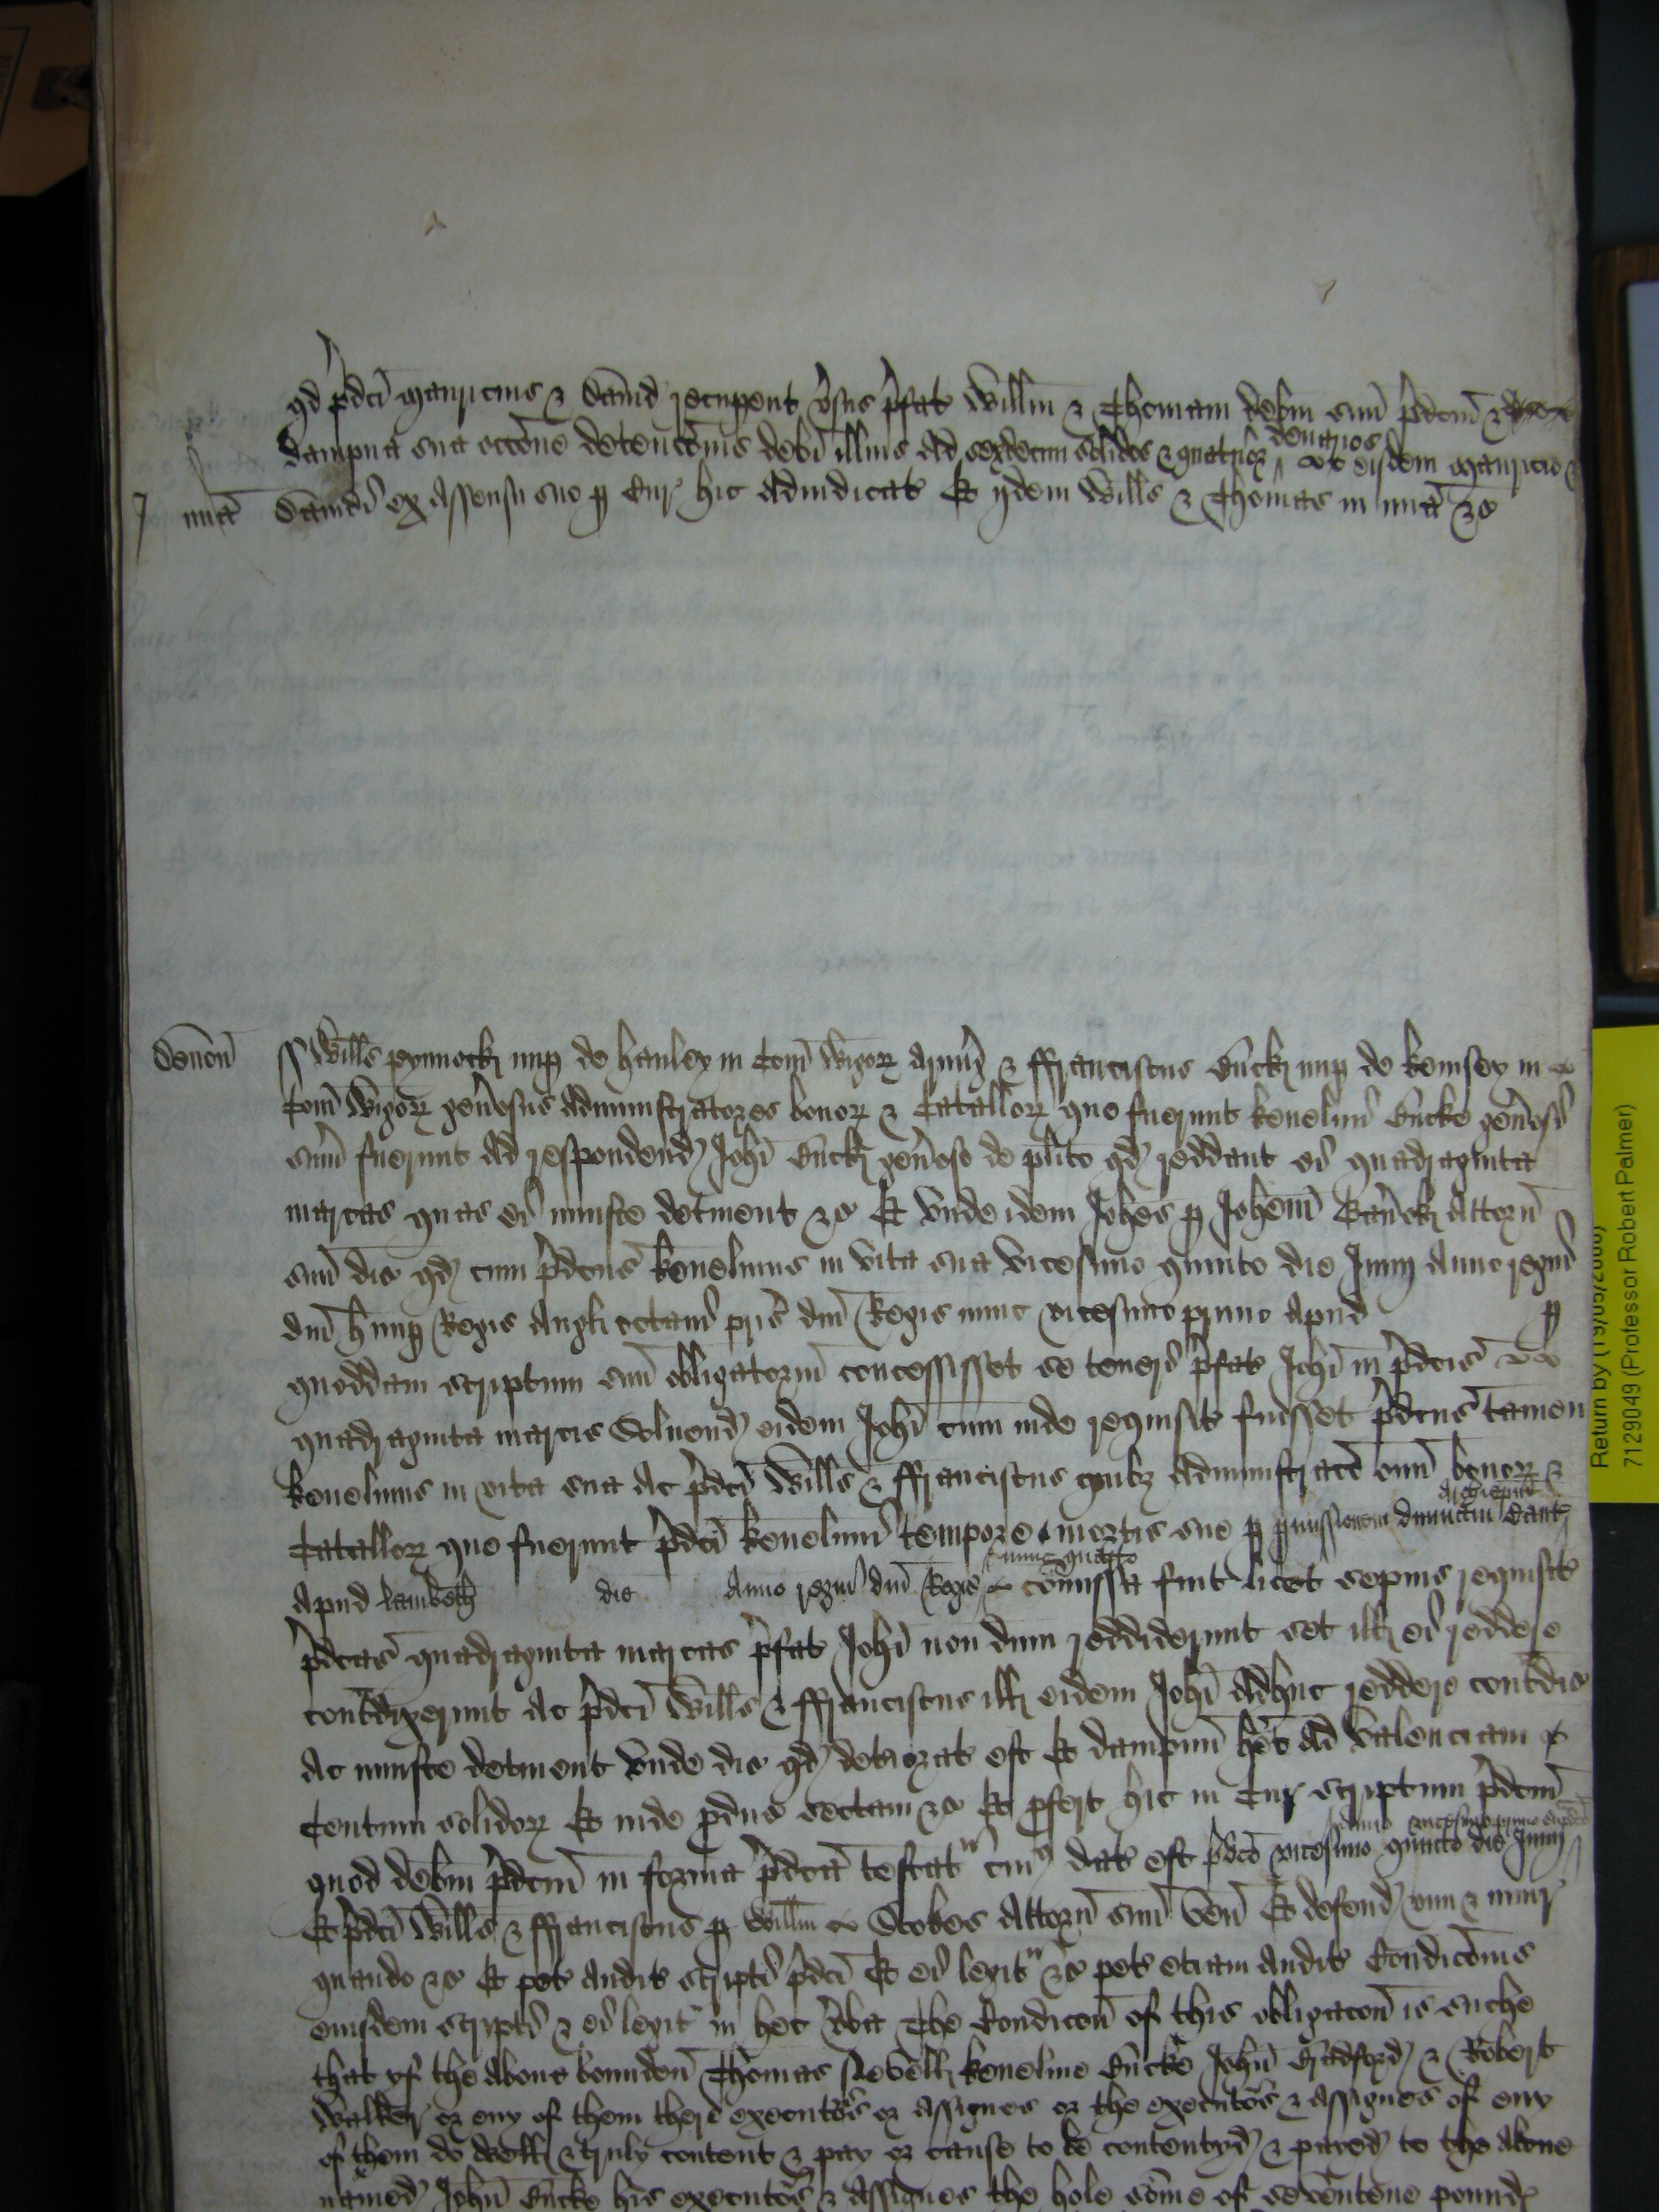 qd p̄dci Mauricius & David recupent v̄sus p̄fat Willm̄ & Thomam debm̄ sūm p̄dcm̄ &
dampna sua occōne detencōnis debi illius ad sexdecim solidos & quatuor denarios eisdem Mauricio &
mīa David ex assensu suo p Cur hic adiudicat Et ijdem Wills & Thomas in mīa &c
Devon ss Wills Pynnock nup de Hanley in Com̄ Wigorn armig & ffranciscus Buck nup de Kemsey in
Com̄ Wigorn gen̄osus administratores bonor & Catallor que fuerunt Kenelmi Bucke gen̄osi
sum̄ fuerunt ad respondend Joh̄i Buck gen̄oso de plito qd reddant ei quadraginta
marcas quas ei iniuste detinent &c Et unde idem Joh̄es p Joh̄em attorn̄
suū dic qd cum p̄dcus Kenelmus in vita sua vicesimo quinto die Junij anno regni
dn̄i H nup Regis Angl octavi pris dn̄i Regis nunc vicesimo primo apud p
quoddam scriptum suū obligatoriū concessisset se teneri p̄fat Joh̄i in p̄dcis
quadraginta marcis Solvend eidem Joh̄i cum inde requisit fuisset p̄dcus tamen
Kenelmus in vita sua ac p̄dci Wills & ffranciscus quibz administracō om̄i bonor &
Catallor que fuerunt p̄dci Kenelmi tempore mortis sue p archiepm̄ Cant
apud Lambeth die Anno regni dn̄i Regis nunc quarto com̄issa fuit licet sepius requisit
p̄dcas quadraginta marcas p̄fat Joh̄i non dum reddiderunt set ill ei reddere
contdixerunt ac p̄dci Wills & ffranciscus ill eidem Joh̄i adhuc reddere contdic
ac iniuste detinent unde dic qd deteriorat est Et dampnū h̄et ad valenciam
Centum solidor Et inde pduc sectam &c Et pfert hic in Cur scriptum p̄dcm̄
quod debm̄ p̄dcm̄ in forma p̄dca testat cuius dat est p̄dco vicesimo quinto die Junij anno vicesimo primo sup̄dco
Et p̄dci Wills & ffranciscus p Willm̄ Stokes attorn̄ suū ven̄ Et defend vim & iniur
quando &c Et pet audit scripti p̄dci Et ei legit &c pet etiam audit Condicōnis
eiusdem scripti & ei legit in hec v̄ba The Condicon̄ of this obligacon̄ is suche
that yf the above bounden̄ Thomas Nevell Kenelme Bucke John̄ Bradford & Robert
Walker or eny of them their executo's or assignes or the executo's & assignes of eny
of them do well & truly content & pay or cause to be contentyd & payed to the above
named John̄ Bucke his executo's & assignes the hole som̄e of seventene pound
Return by (19/05/2006)
7129049 (Professor Robert Palmer)